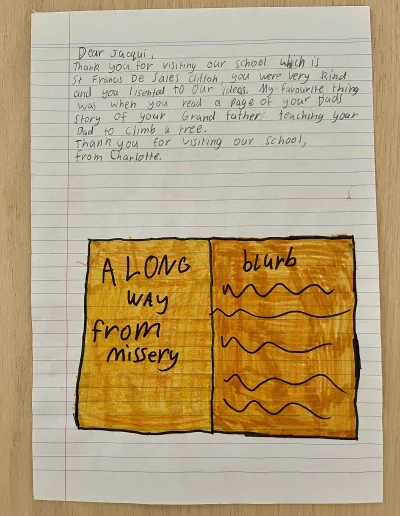 Dear Jacqui,
Thank you for visiting our school which is
St Francis De Sales Clifton, you were very kind
and you lisented to our ideas. My favourite thing
was when you read a page of your Dads
story of your Grand father teaching your
Dad to climb a tree.
Thank you for visiting our school,
from Charlotte.
A LONG
WAY
from
missery
blurb